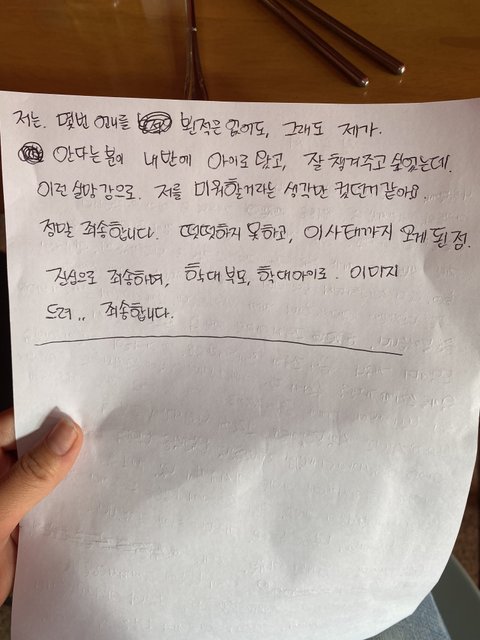 저는. 몇번 언니를 뵌적은 없어도, 그래도 제가.
안다는 분이 내반에 아이로 왔고, 잘 챙겨주고 싶었는데.
이런 실망감으로. 저를 미워할거라는 생각만 컸던거같아요.
정말 죄송합니다. 떳떳하지 못하고, 이사태까지 오게 된점.
진심으로 죄송하며, 학대부모, 학대아이로. 이미지
드려.. 죄송합니다.